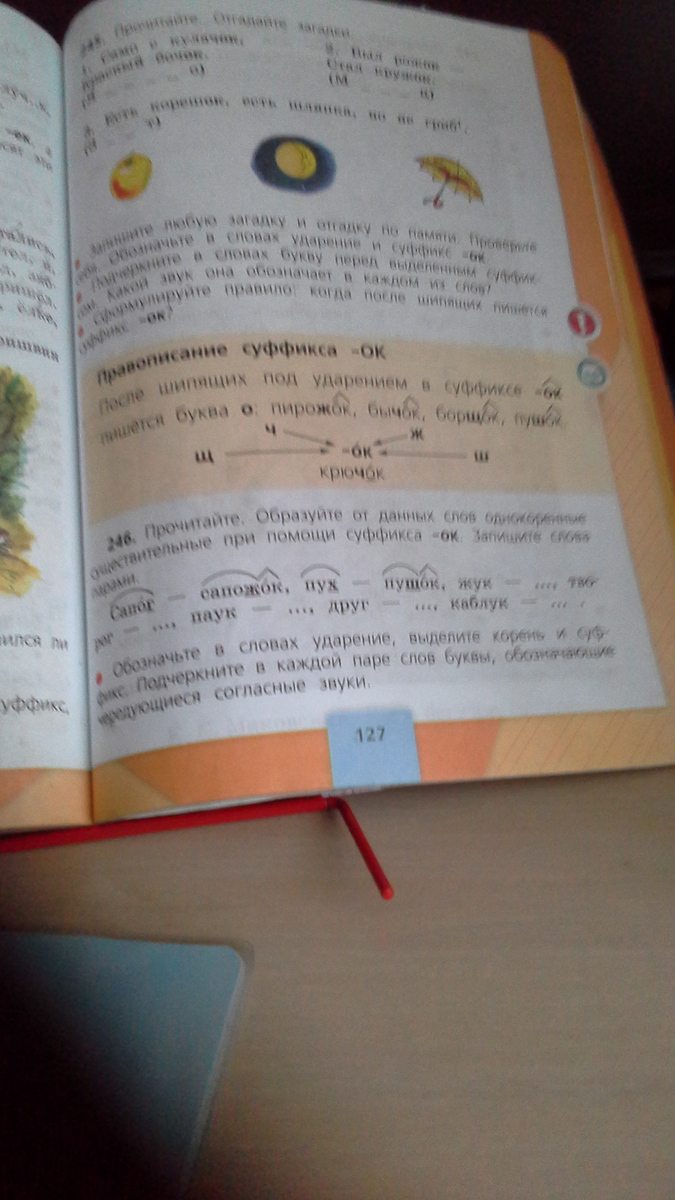 245. Прочитайте. Отгадайте загадки.
1. Сами с кулачок,
красный бочок.
(Я _ _ _ _ о)
2. Был рожок —
Стал кружок.
(М _ _ _ _ ц)
3. Есть корешок, есть шляпка, но не гриб.
(З _ _ т)
• Запишите любую загадку и отгадку по памяти. Проверьте
себя. Обозначьте в словах ударение и суффикс -ок.
• Подчеркните в словах букву перед выделенным суффик-
сом. Какой звук она обозначает в каждом из слов?
• Сформулируйте правило: когда после шипящих пишется
суффикс -ок?
Правописание суффикса -ОК
После шипящих под ударением в суффиксе -о́к
пишется буква о: пирожо́к, бычо́к, борщо́к, пушо́к.
ч ж
щ -о́к ш
крючо́к
246. Прочитайте. Образуйте от данных слов однокоренные
существительные при помощи суффикса -ок. Запишите слова
парами.
Сапо́г — сапожо́к, пух — пушо́к, жук — ..., тво-
рог — ..., паук — ..., друг — ..., каблук — ... .
• Обозначьте в словах ударение, выделите корень и суф-
фикс. Подчеркните в каждой паре слов буквы, обозначающие
чередующиеся согласные звуки.
127
-ок,
ёлке,
уффикс,